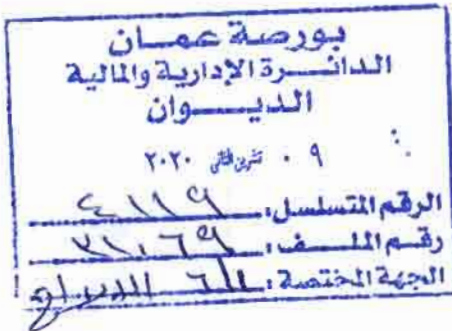 بورصة عمان
الدائرة الإدارية والمالية
الديوان
٠٩ تشرين الثاني ٢٠٢٠
الرقم المتسلسل: ٤١١٩
رقم الملف: ٣١٠٦٩
الجهة المختصة: